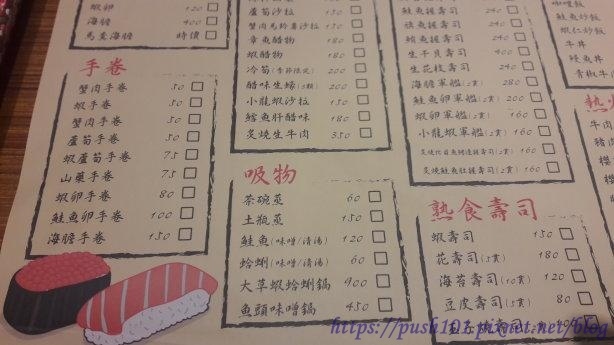 蝦卵 120
海膽 400
馬糞海膽 時價
手卷
蟹肉手卷 50
蝦手卷 50
蟹肉手卷 50
蘆筍手卷 50
蝦蘆筍手卷 75
山藥手卷 75
蝦卵手卷 80
鮭魚卵手卷 100
海膽手卷 150
蘆筍沙拉 150
蟹肉馬鈴薯沙拉 150
章魚醋物 180
蝦醋物 180
冷筍(季節限定) 200
醋味生蠔(5顆) 200
小龍蝦沙拉 150
鱈魚肝醋味 180
炙燒生牛肉 350
吸物
茶碗蒸 60
土瓶蒸 150
鮭魚(味噌/清湯) 120
蛤蜊(味噌/清湯) 60
大草蝦蛤蜊鍋 900
魚頭味噌鍋 450
鮭魚握壽司 240
旗魚握壽司 240
鮪魚握壽司 240
生干貝壽司 400
生花枝壽司 240
海膽軍艦(2貫) 280
鮭魚卵軍艦(2貫) 200
蝦卵軍艦(2貫) 160
小龍蝦軍艦(2貫) 160
炙燒鮭魚肚握壽司(2貫) 160
熟食壽司
蝦壽司 150
花壽司(5貫) 180
海苔壽司(10貫) 120
豆皮壽司(5貫) 80
咖哩飯
鮭魚炒飯
蝦仁炒飯
牛丼
鮭魚丼
青椒牛
熱
牛肉
豬肉
https://push103.pixnet.net/blog